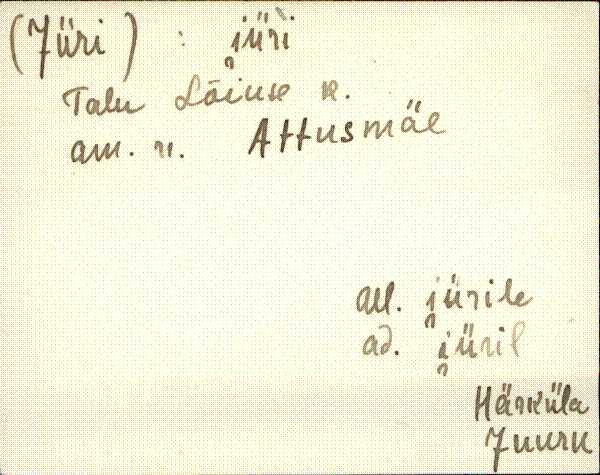 (Jüri) : jüri
Talu Lõiuse k.
am. n. Attusmäe
all. jürile
ad. jüril
Härküla
Juuru